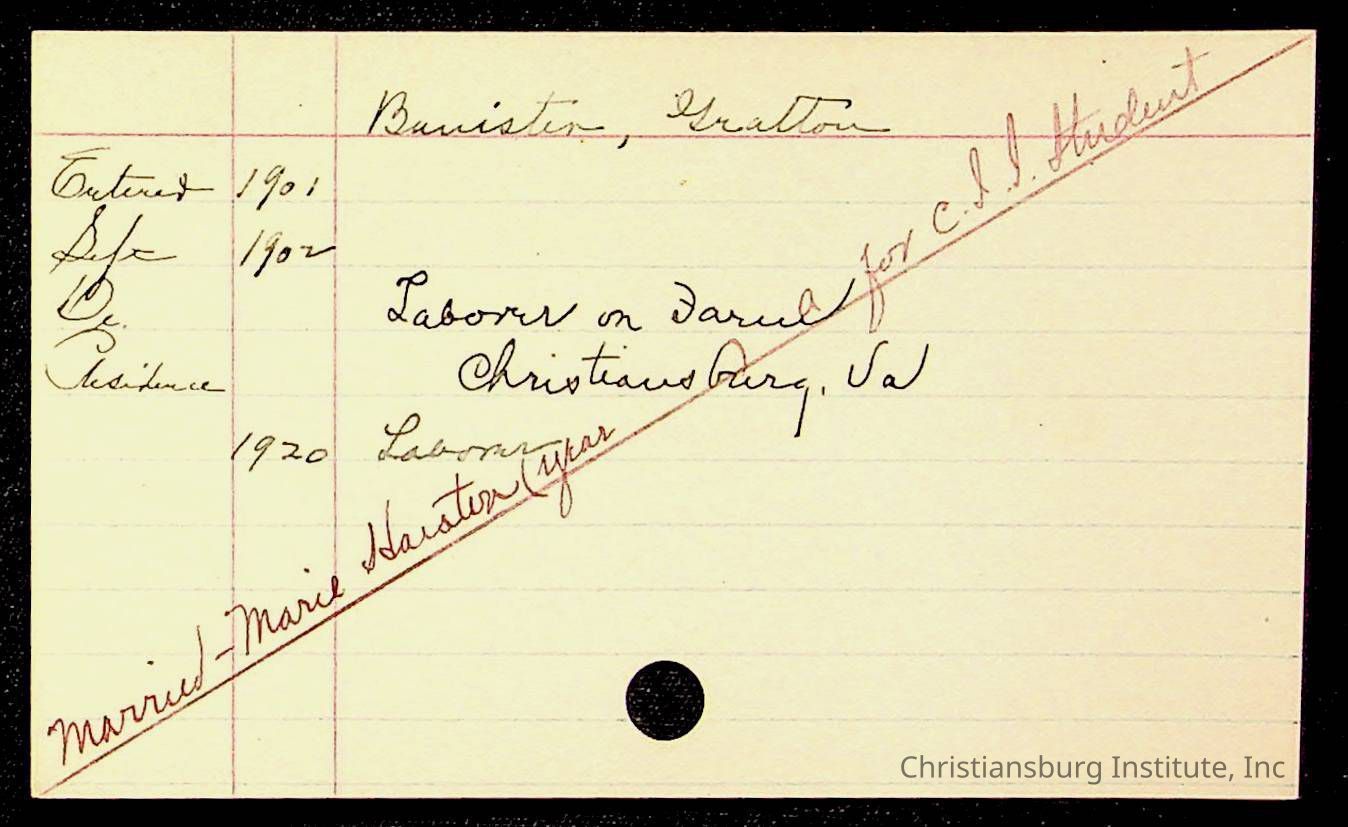 Banister, Gratton
Entered 1901
Left 1902
Laborer on Farm
Residence Christiansburg, Va
1920 Laborer
Married - Marie Hairston (year for C.I.I. Student
Christiansburg Institute, Inc